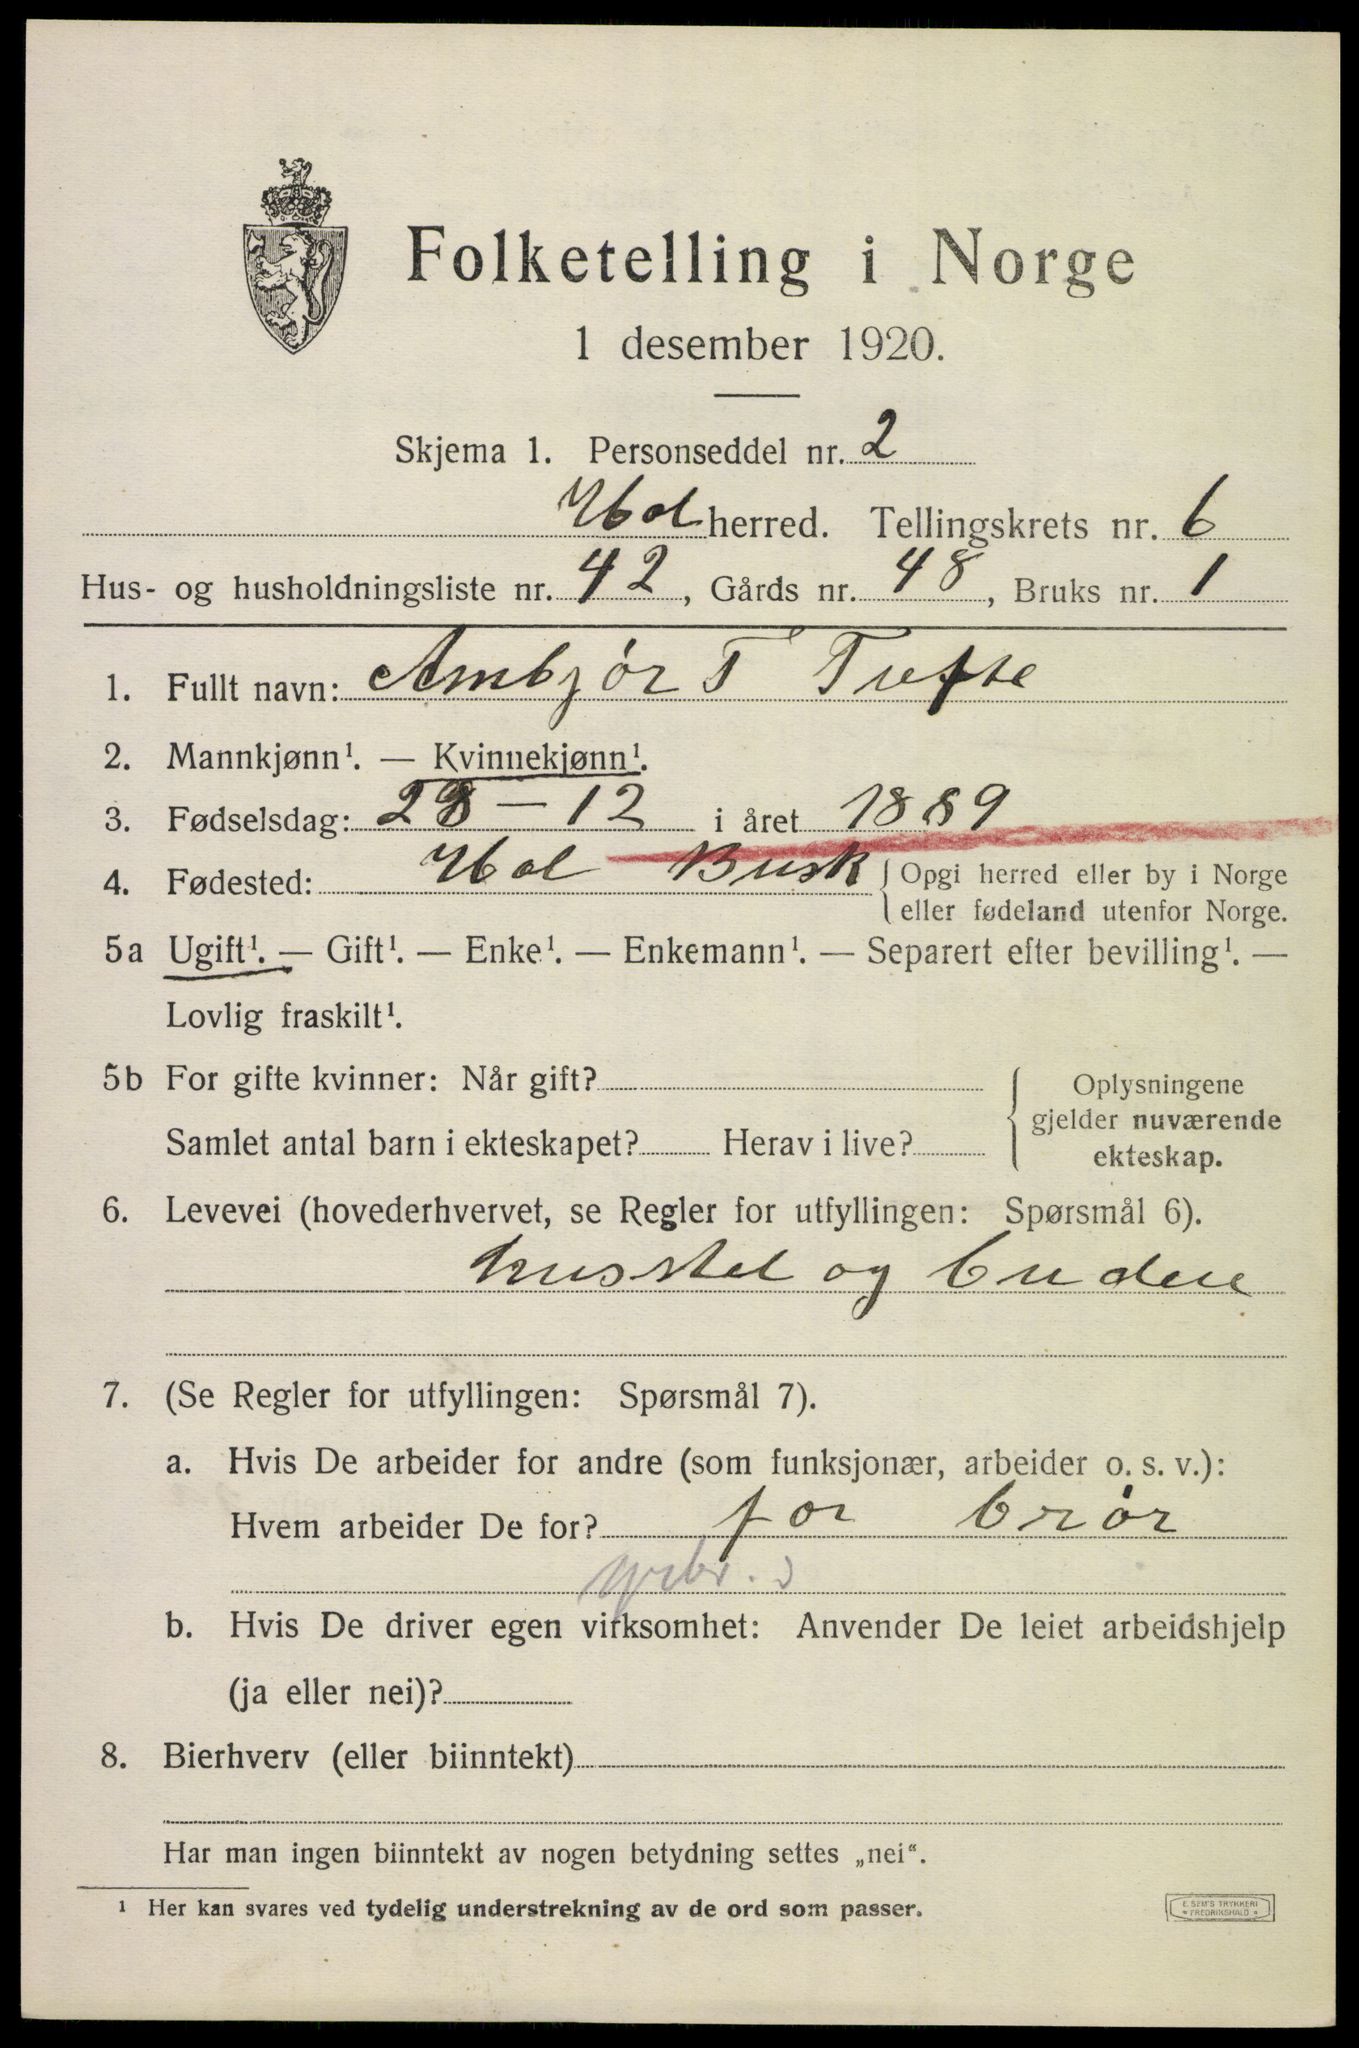 Folketelling i Norge
1 desember 1920.
Skjema 1. Personseddel nr. 2
Hol herred. Tellingskrets nr. 6
Hus- og husholdningsliste nr. 42, Gårds nr. 48, Bruks nr. 1
1. Fullt navn: Ambjør T Tufte
2. Mannkjønn¹. — Kvinnekjønn¹.
3. Fødselsdag: 28 – 12 i året 1889
4. Fødested: Hol Busk { Opgi herred eller by i Norge
eller fødeland utenfor Norge.
5a Ugift¹. — Gift¹. — Enke¹. — Enkemann¹. — Separert efter bevilling¹. —
Lovlig fraskilt¹.
5b For gifte kvinner: Når gift? Oplysningene
gjelder nuværende
Samlet antal barn i ekteskapet? Herav i live? ekteskap.
6. Levevei (hovederhvervet, se Regler for utfyllingen: Spørsmål 6).
husstel og budeie
7. (Se Regler for utfyllingen: Spørsmål 7).
a. Hvis De arbeider for andre (som funksjonær, arbeider o. s. v.):
Hvem arbeider De for? for brør
b. Hvis De driver egen virksomhet: Anvender De leiet arbeidshjelp
(ja eller nei)?
8. Bierhverv (eller biinntekt)
Har man ingen biinntekt av nogen betydning settes „nei“.
¹ Her kan svares ved tydelig understrekning av de ord som passer.
E. SEM'S TRYKKERI
FREDRIKSHALD